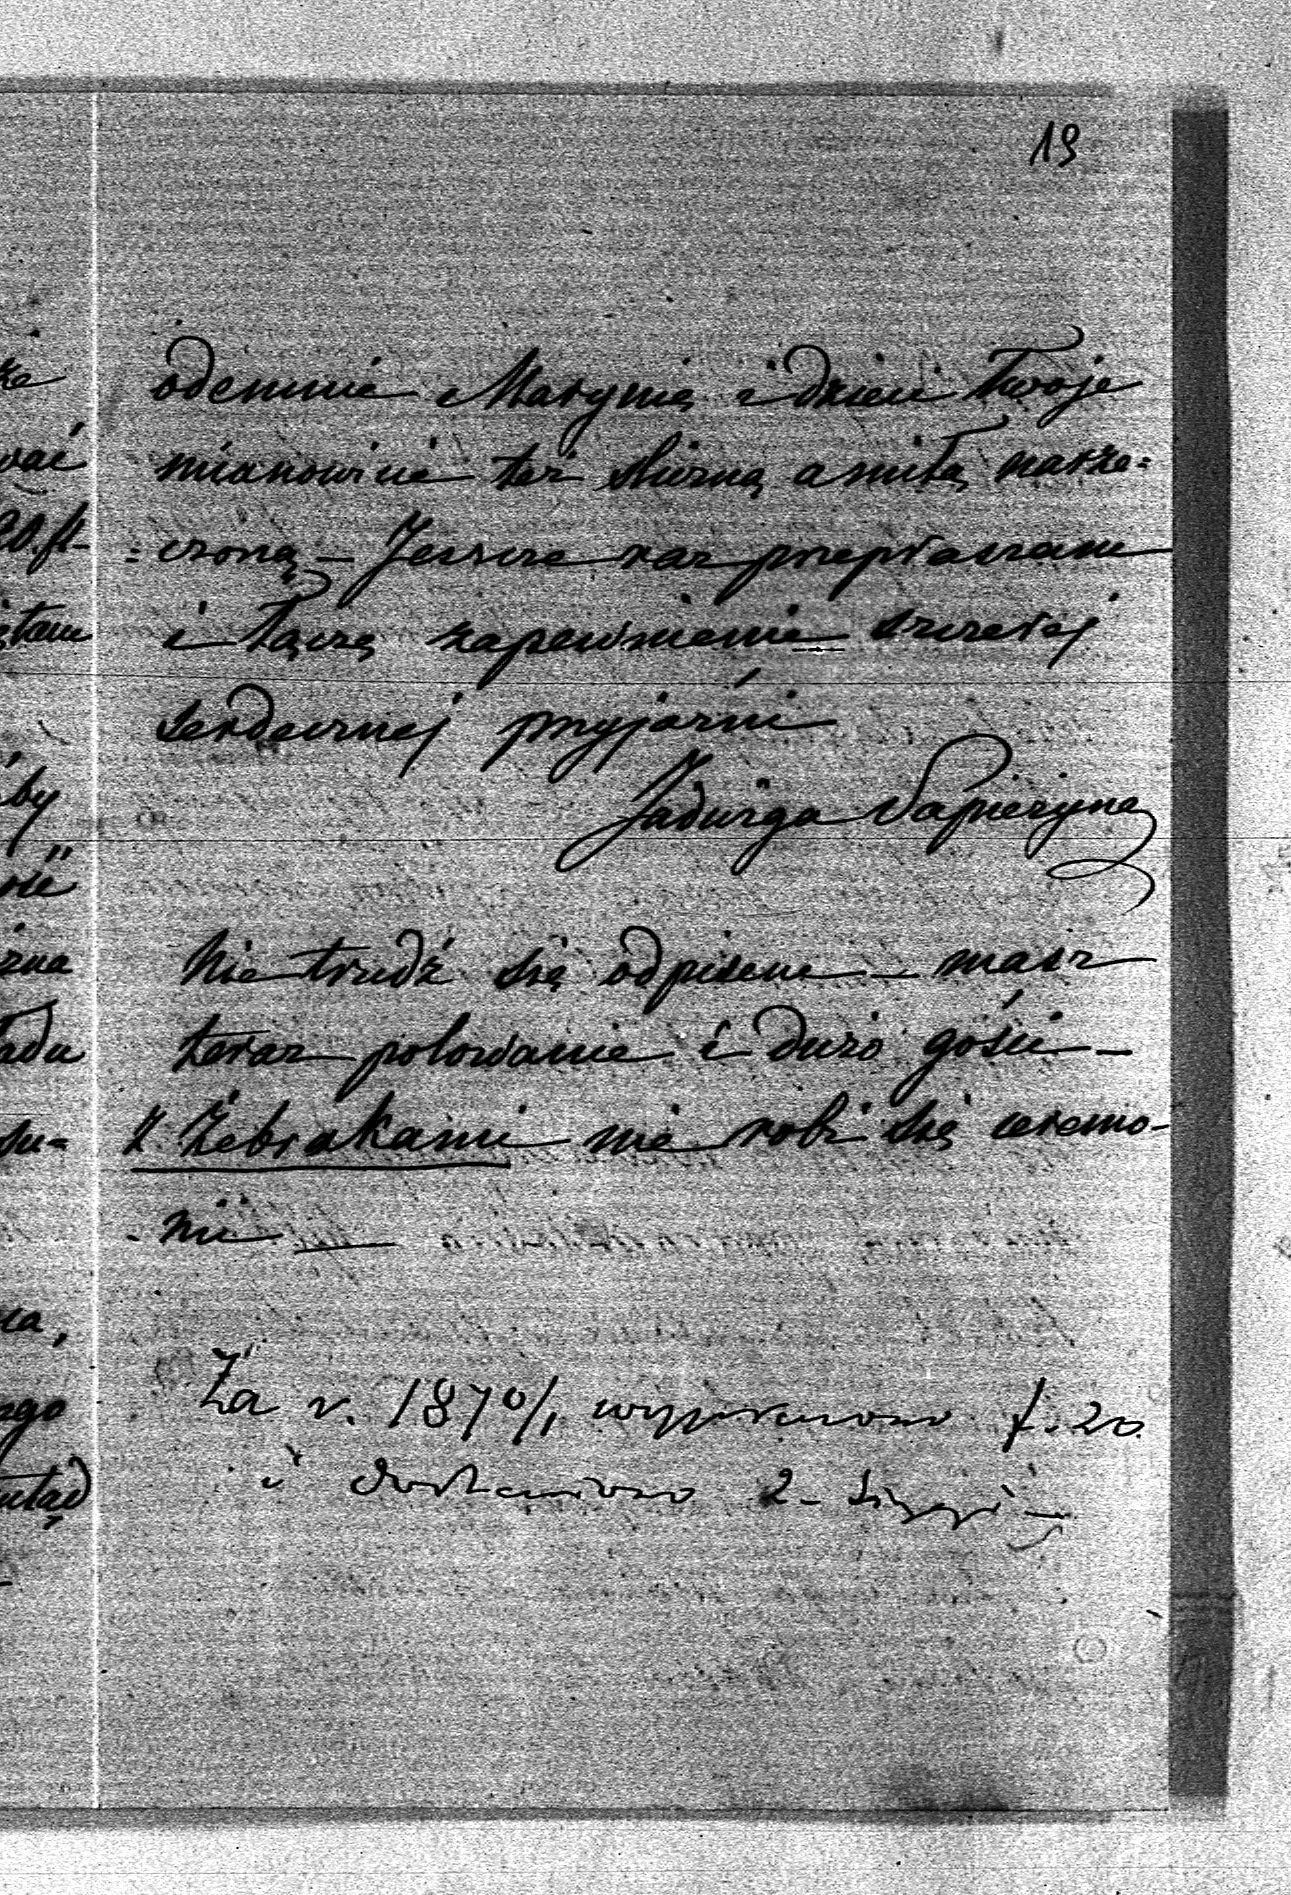 19
odemnie Marynię i dzieci Twoje
mianowicie też śliczną a miłą narze=
=czoną – Jeszcze raz przepraszam
i łączę zapewnienie szczerej
serdecznej przyjaźni
Jadwiga Sapieżyna
Nie trudź się odpisem – masz
teraz polowanie i dużo gości –
z Żebrakami nie robi się ceremo-
-nii —
Za r. 1870/1 wyprawiono f. 20.
i dostawiono 2 –